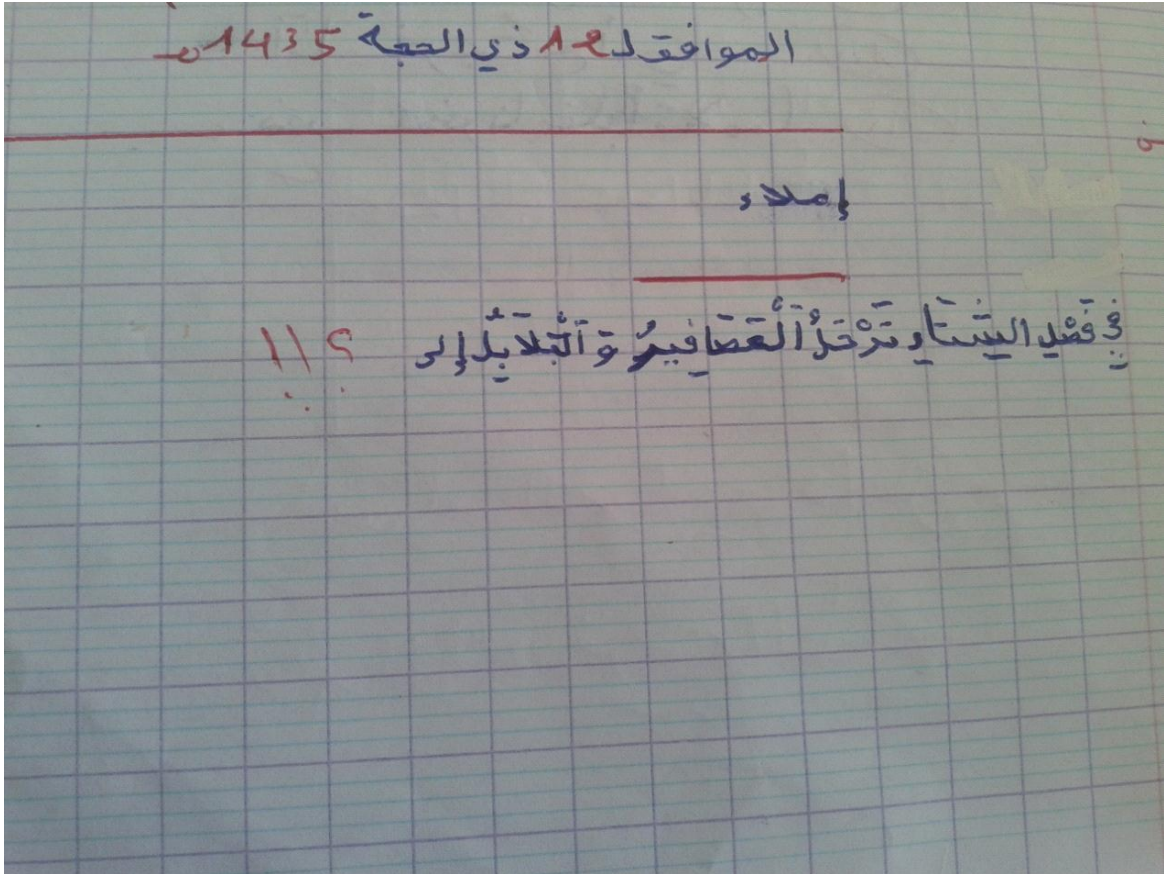 الموافق لـ 12 ذي الحجة 1435 هـ
إملاء
فِي فَصْلِ الشِّتَاءِ تَرْحَلُ الْعَصَافِيرُ وَ الْبَلَابِلُ إلى ؟!!